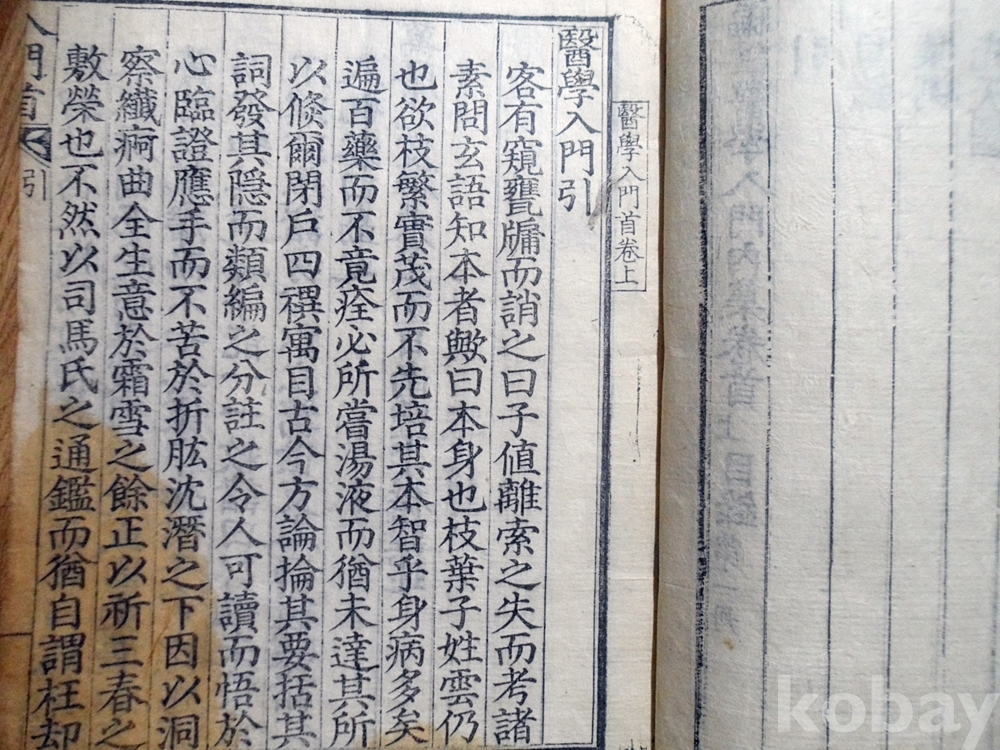 醫學入門首卷上
醫學入門引
客有窺甕牖而誚之曰子値離索之失而考諸
素問玄語知本者歟曰本身也枝葉子姓雲仍
也欲枝繁實茂而不先培其本智乎身病多矣
遍百藥而不竟痊必所嘗湯液而猶未達其所
以倐爾閉戶四禩寓目古今方論掄其要括其
詞發其隱而類編之分註之令人可讀而悟於
心臨證應手而不苦於折肱沈潛之下因以洞
察纖痾曲全生意於霜雪之餘正以祈三春之
敷榮也不然以司馬氏之通鑑而猶自謂枉却
入門首 引
kobay